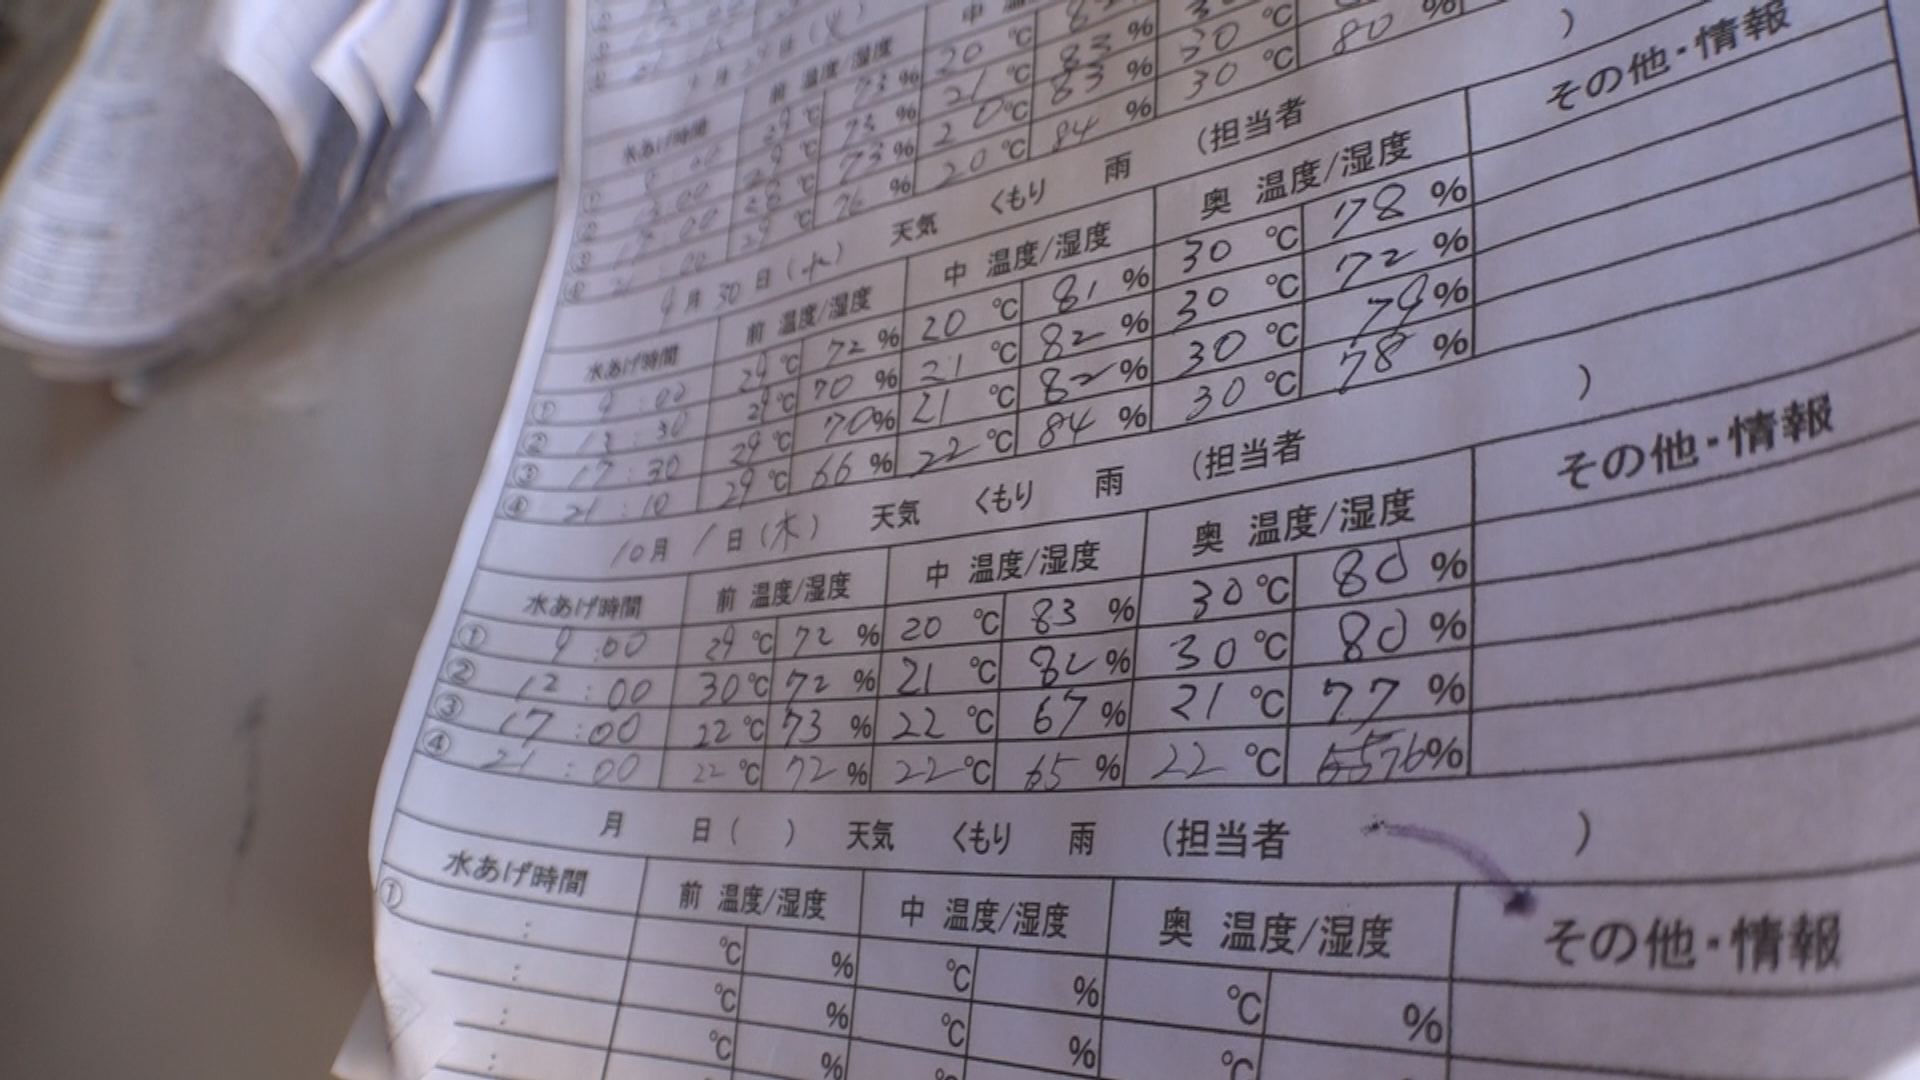 前 温度/湿度
水あげ時間 29 ℃ 73 % 20 ℃ 83 % 30 ℃
29 ℃ 73 % 21 ℃ 83 % 30 ℃ 80 %
17:00 28 ℃ 73 % 20 ℃ 84 % 30 ℃
④ 21:00 29 ℃ 76 % 20 ℃
9月 30日 (水) 天気 くもり 雨 (担当者 )
水あげ時間 前 温度/湿度 中 温度/湿度 奥 温度/湿度 その他・情報
① 9:00 29 ℃ 72 % 20 ℃ 81 % 30 ℃ 78 %
② 13:30 29 ℃ 70 % 21 ℃ 82 % 30 ℃ 72 %
③ 17:30 29 ℃ 70 % 21 ℃ 82 % 30 ℃ 79 %
④ 21:10 29 ℃ 66 % 22 ℃ 84 % 30 ℃ 78 %
10月 1日 (木) 天気 くもり 雨 (担当者 )
水あげ時間 前 温度/湿度 中 温度/湿度 奥 温度/湿度 その他・情報
① 9:00 29 ℃ 72 % 20 ℃ 83 % 30 ℃ 80 %
② 12:00 30 ℃ 72 % 21 ℃ 82 % 30 ℃ 80 %
③ 17:00 22 ℃ 73 % 22 ℃ 67 % 21 ℃ 77 %
④ 21:00 22 ℃ 72 % 22 ℃ 65 % 22 ℃ 76 %
月 日 ( ) 天気 くもり 雨 (担当者 )
水あげ時間 前 温度/湿度 中 温度/湿度 奥 温度/湿度 その他・情報
① : ℃ % ℃ % ℃ %
: ℃ % ℃ % ℃
: ℃ % ℃
: